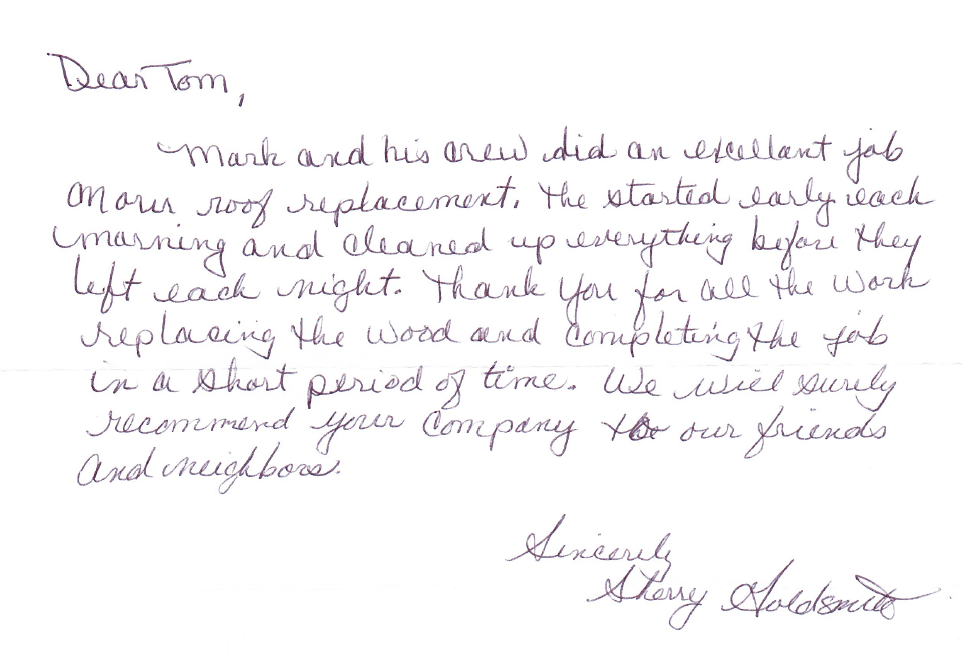 Dear Tom,
Mark and his crew did an excellant job
on our roof replacement. The started early each
morning and cleaned up everything before they
left each night. Thank you for all the work
replacing the wood and completing the job
in a short period of time. We will surely
recommend your company to our friends
and neighbors.
Sincerely
Sherry Goldsmith